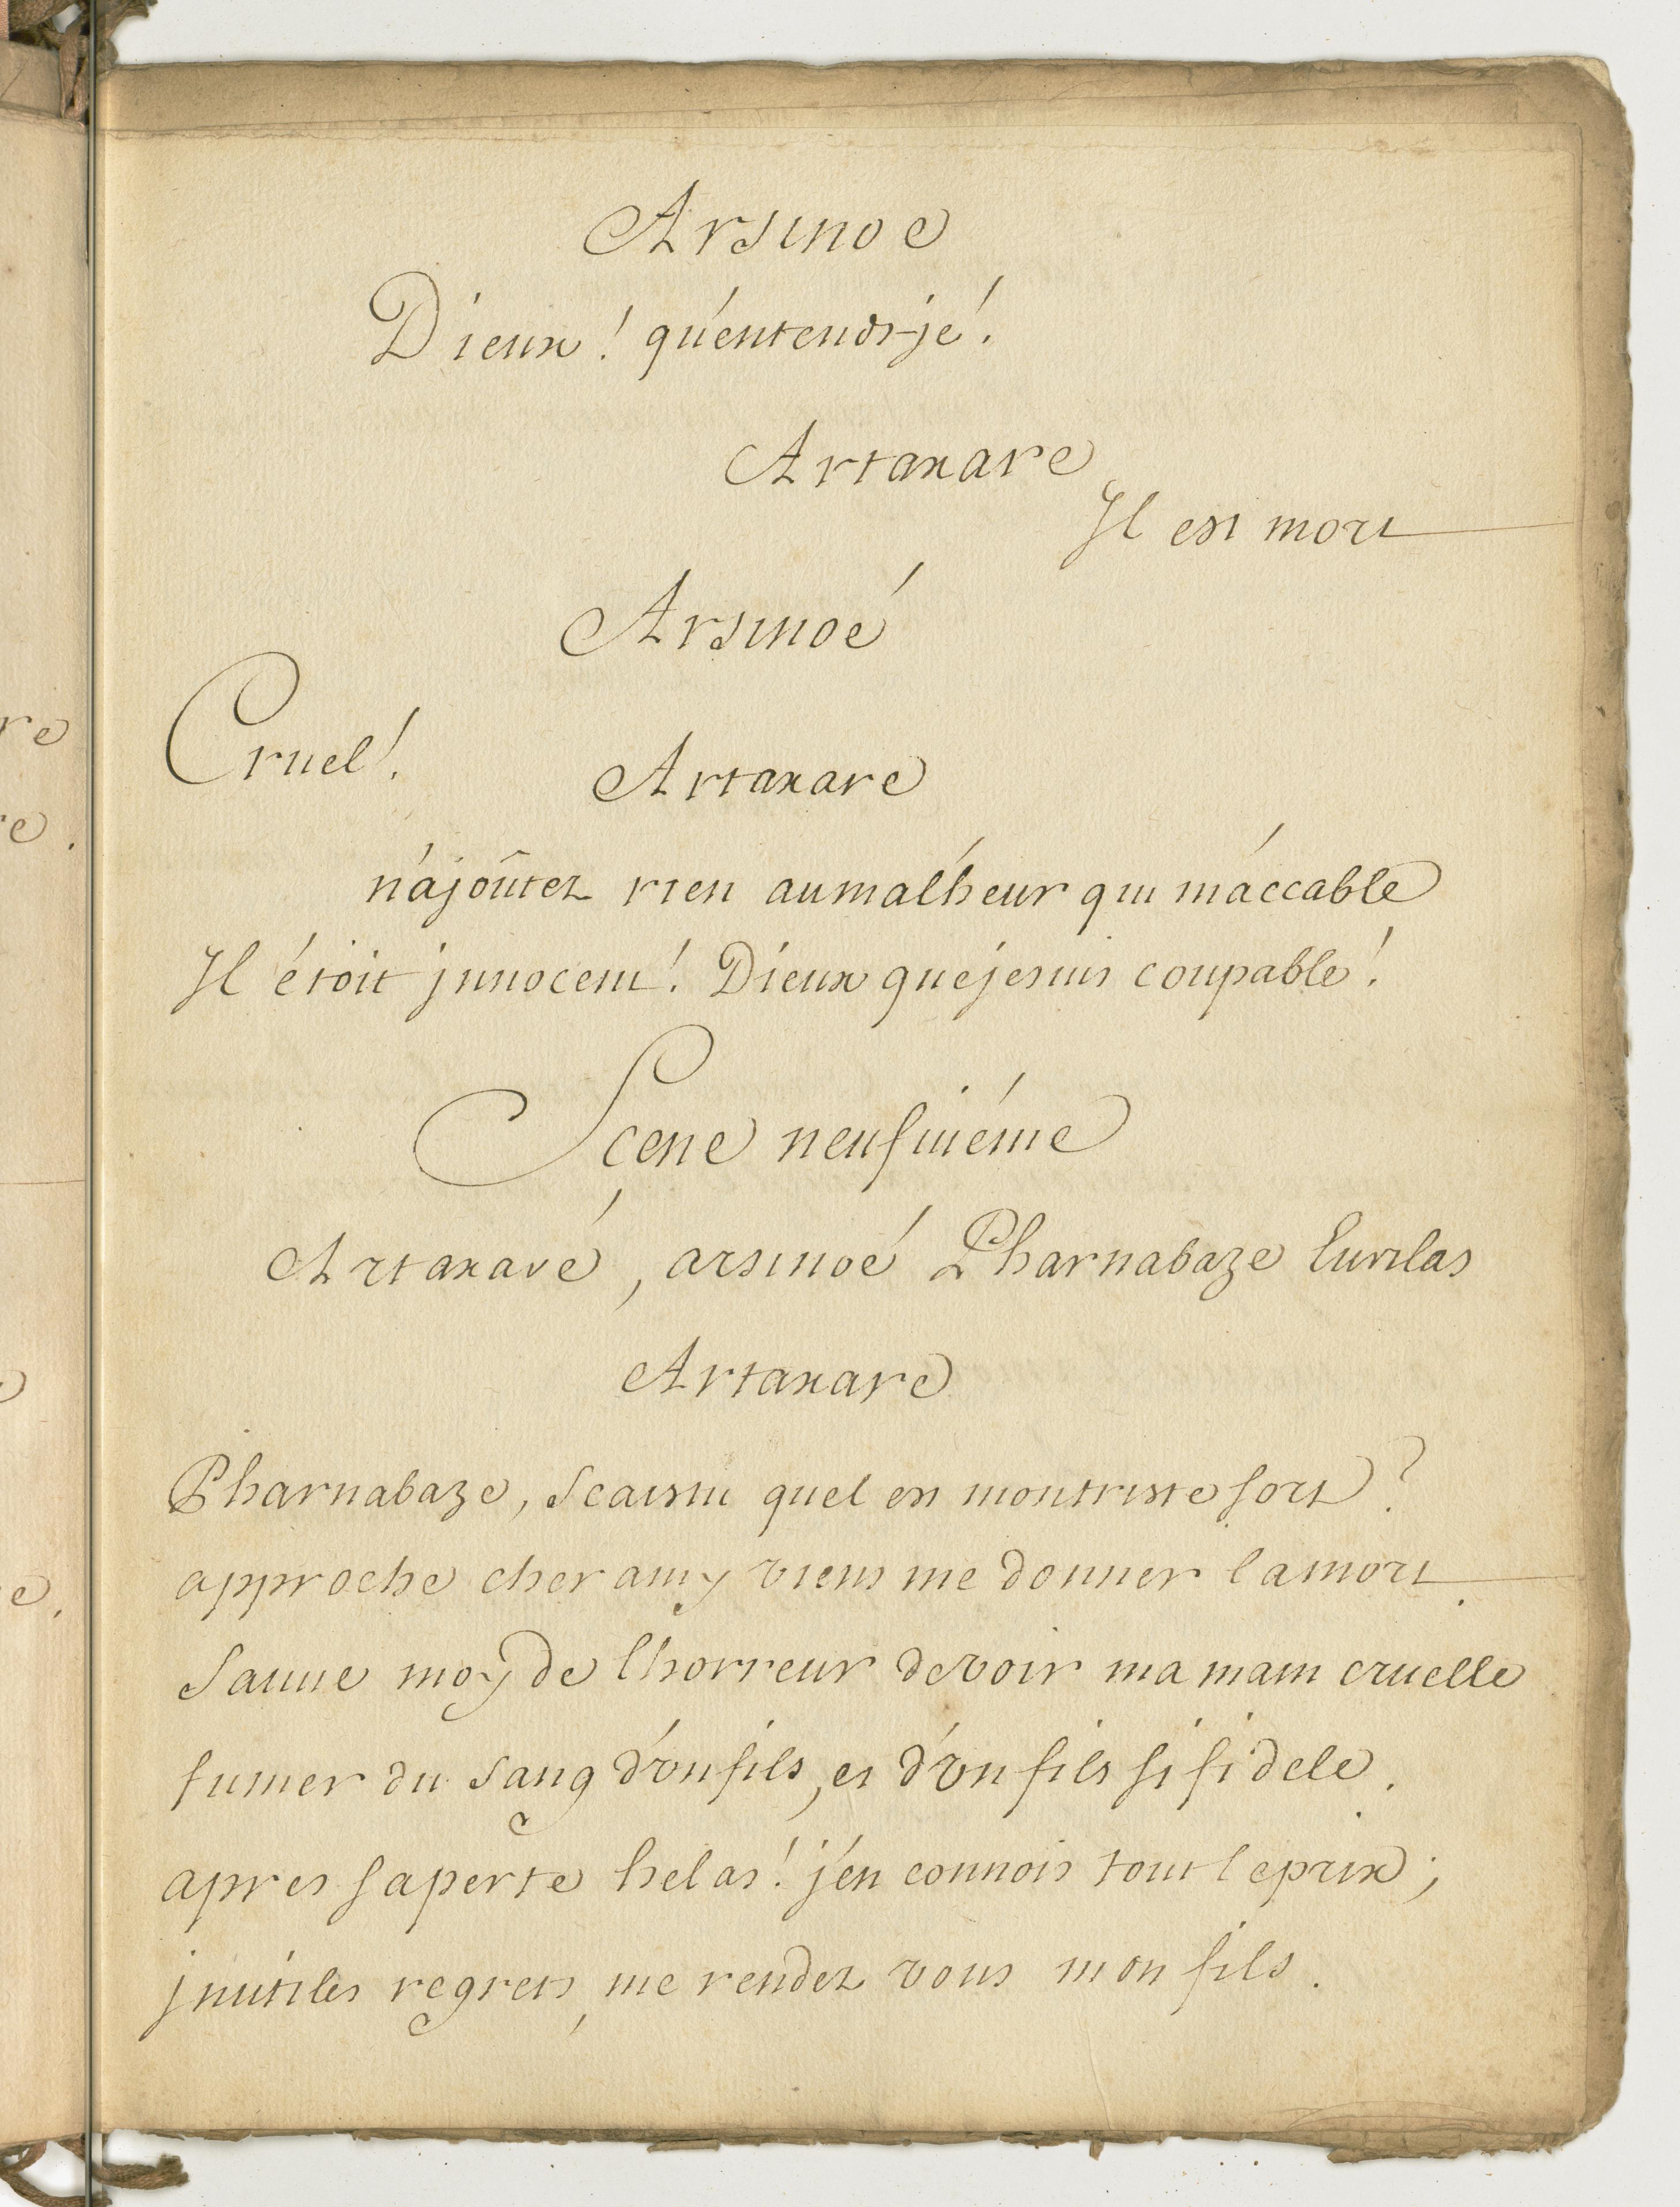 Arsinoe
Dieux! qu'entends-je!
Artaxare
Il est mort
Arsinoé
Cruel!
Artaxare
n'ajoûtez rien au malheur qui m'accable
Il étoit jnnocent! Dieux que je suis coupable!
Scene neufuiéme
Artaxare, arsinoé Pharnabaze Eurilas
Artaxare
Pharnabaze, Scais tu quel est mon triste sort?
approche cher amy viens me donner la mort.
Sauue moy de l'horreur de voir ma main cruelle
fumer du Sang d'vn fils, et d'vn fils si fidele.
apres sa perte helas! j'en connois tout le prix;
jnutiles regrets, me rendez vous mon fils.